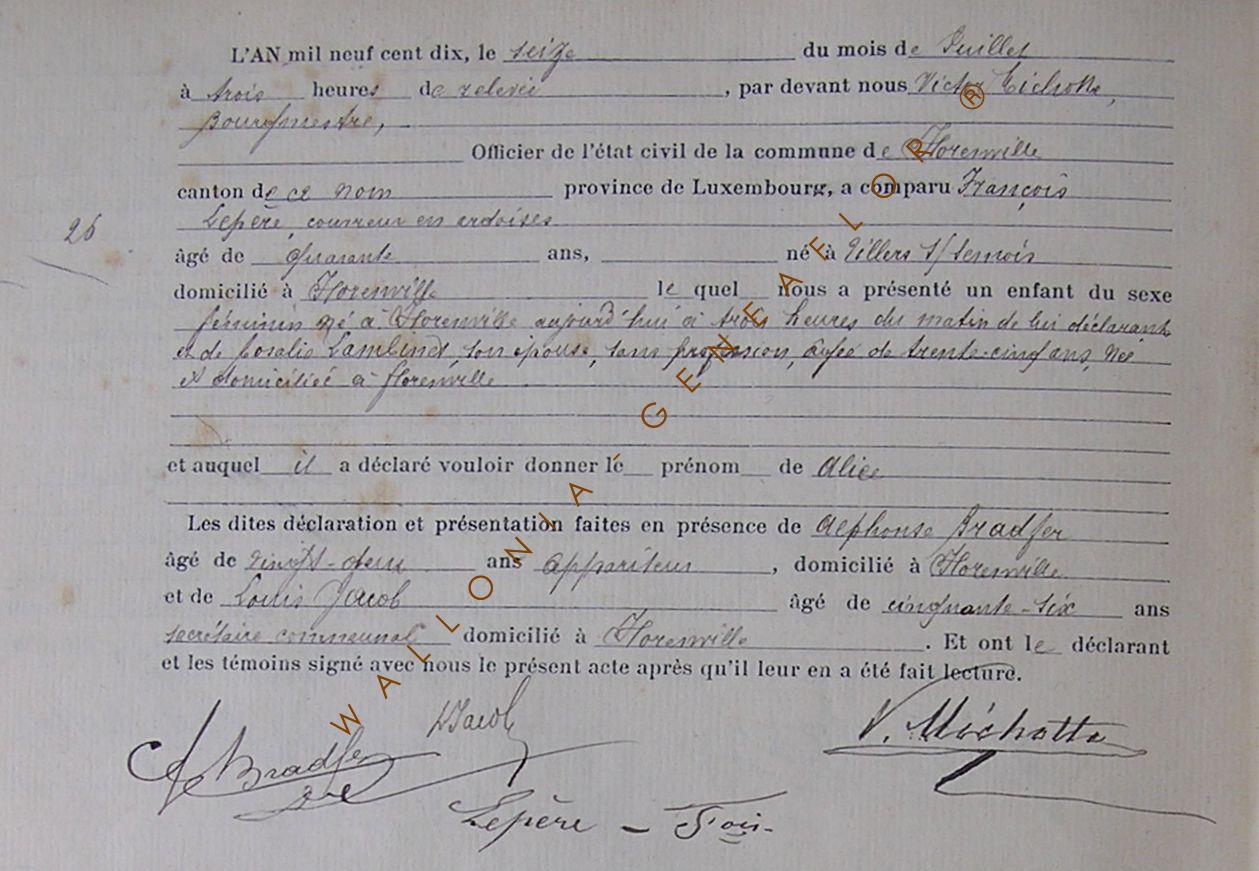 L'AN mil neuf cent dix, le seize du mois de Juillet
à trois heures de relevée, par devant nous Victor Michotte,
Bourgmestre,
Officier de l'état civil de la commune de Florenville
canton de ce nom province de Luxembourg, a comparu François
Lepère, couvreur en ardoises
26
âgé de quarante ans, né à Villers s/ Semois
domicilié à Florenville le quel nous a présenté un enfant du sexe
féminin né à Florenville aujourd'hui à trois heures du matin de lui déclarant
et de Rosalie Lambinet, son épouse, sans profession, âgée de trente-cinq ans, née
et domiciliée à Florenville
et auquel il a déclaré vouloir donner le prénom de Alice
Les dites déclaration et présentation faites en présence de Alphonse Bradfer
âgé de vingt-deux ans appariteur, domicilié à Florenville
et de Louis Jacob âgé de cinquante-six ans
secrétaire communal domicilié à Florenville. Et ont le déclarant
et les témoins signé avec nous le présent acte après qu'il leur en a été fait lecture.
LJacob
V. Michotte
A Bradfer
Lepère - Fois
WALLONIA GENEAFLOR ®